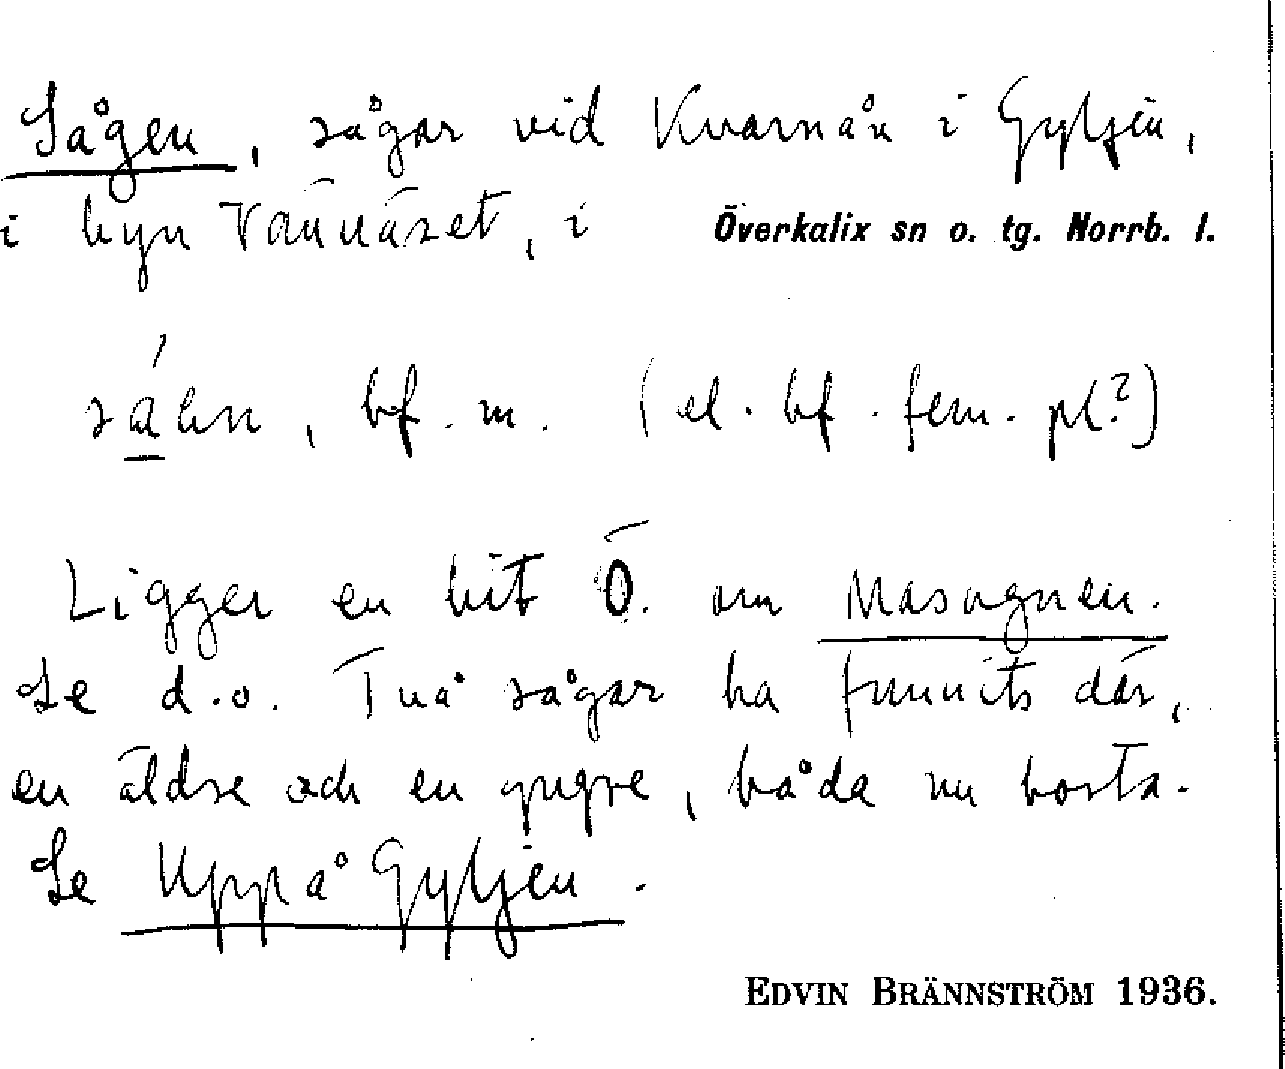 Sågen, sågar vid Kvarnån i Gyljen,
i byn Vännäset, i Överkalix sn o. tg. Norrb. l.
bf. m. (el. bf. fem. pl.?)
Ligger en bit Ö. om Masugnen.
Se d.o. Två sågar ha funnits där,
en äldre och en yngre, båda nu borta.
Se Uppå Gyljen.
EDVIN BRÄNNSTRÖM 1936.